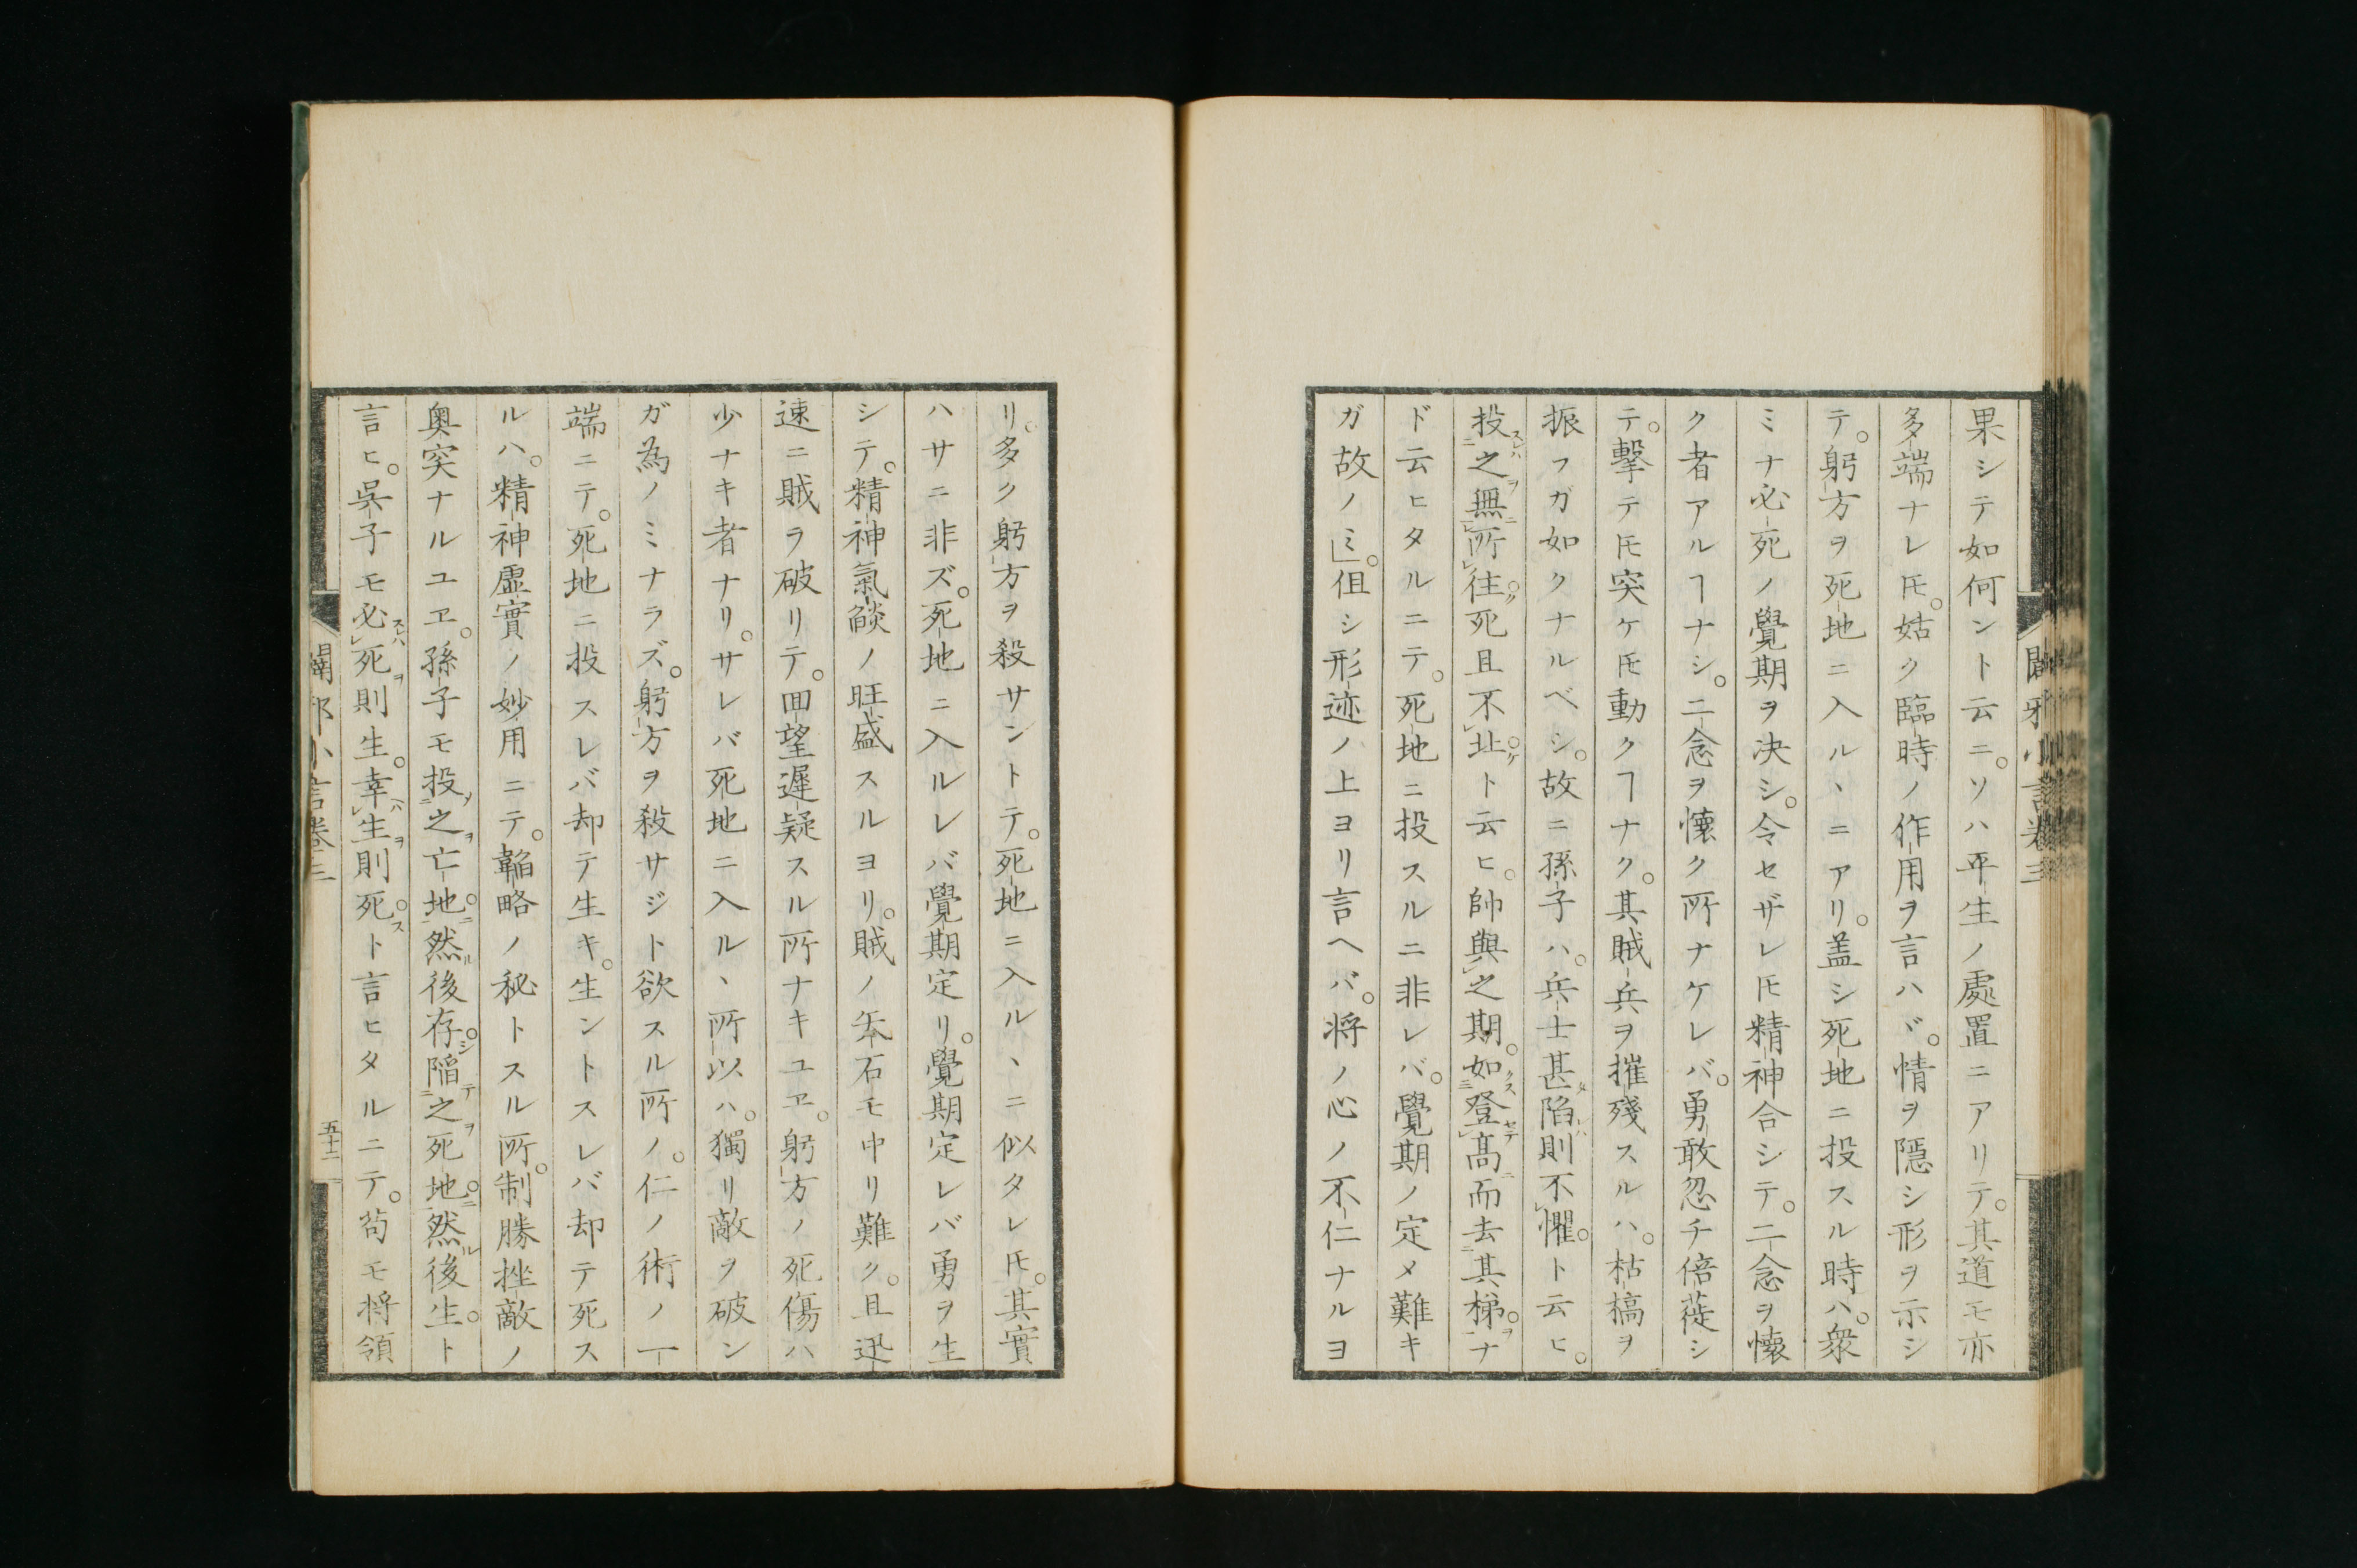 果シテ如何ント云ニ。ソハ平生ノ處置ニアリテ。其道モ亦
多端ナレ𪜈。姑ク臨時ノ作用ヲ言ハヾ。情ヲ隱シ形ヲ示シ
テ。躬方ヲ死地ニ入ルヽニアリ。盖シ死地ニ投スル時ハ。衆
ミナ必死ノ覺期ヲ决シ。令セザレ𪜈精神合シテ。二念ヲ懐
ク者アルヿナシ。二念ヲ懐ク所ナケレバ。勇敢忽チ倍蓰シ
テ。擊テ𪜈突ケ𪜈動クヿナク。其賊兵ヲ摧殘スルハ。枯槁ヲ
振フガ如クナルベシ。故ニ孫子ハ。兵士甚陷則不懼。ト云ヒ。
投之無所往。死且不北。ト云ヒ。帥與之期。如登高而去其梯。ナ
ド云ヒタルニテ。死地ニ投スルニ非レバ。覺期ノ定メ難キ
ガ故ノミ。伹シ形迹ノ上ヨリ言ヘバ。将ノ心ノ不仁ナルヨ
闢邪小言卷三
リ。多ク躬方ヲ殺サントテ。死地ニ入ルヽニ似タレ𪜈。其實
ハサニ非ズ。死地ニ入ルレバ覺期定リ。覺期定レバ勇ヲ生
シテ。精神氣燄ノ旺盛スルヨリ。賊ノ矢石モ中リ難ク。且迅
速ニ賊ヲ破リテ。囬望遲疑スル所ナキユヱ。躬方ノ死傷ハ
少ナキ者ナリ。サレバ死地ニ入ルヽ所以ハ。獨リ敵ヲ破ン
ガ為ノミナラズ。躬方ヲ殺サジト欲スル所ノ。仁ノ術ノ一
端ニテ。死地ニ投スレバ却テ生キ。生ントスレバ却テ死ス
ルハ。精神虛實ノ妙用ニテ。韜略ノ秘トスル所。制勝挫敵ノ
奥突ナルユヱ。孫子モ投之亡地。然後存。陷之死地。然後生。ト
言ヒ。吳子モ必死則生。幸生則死。ト言ヒタルニテ。苟モ将領
闢邪小言卷三
五十二